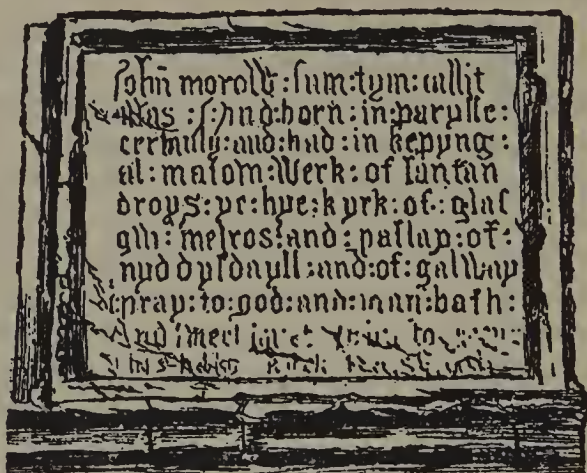 John morow : sum : tym : callit
was : I : and : born : in : parysse :
certainly : and : had : in kepyng :
al : mason : werk : of santan
droys : ye : hye : kyrk : of : glas
gw : melros : and : paslay : of :
nyddysdayll : and : of : galway
pray : to : god : and : mari : bath :
and